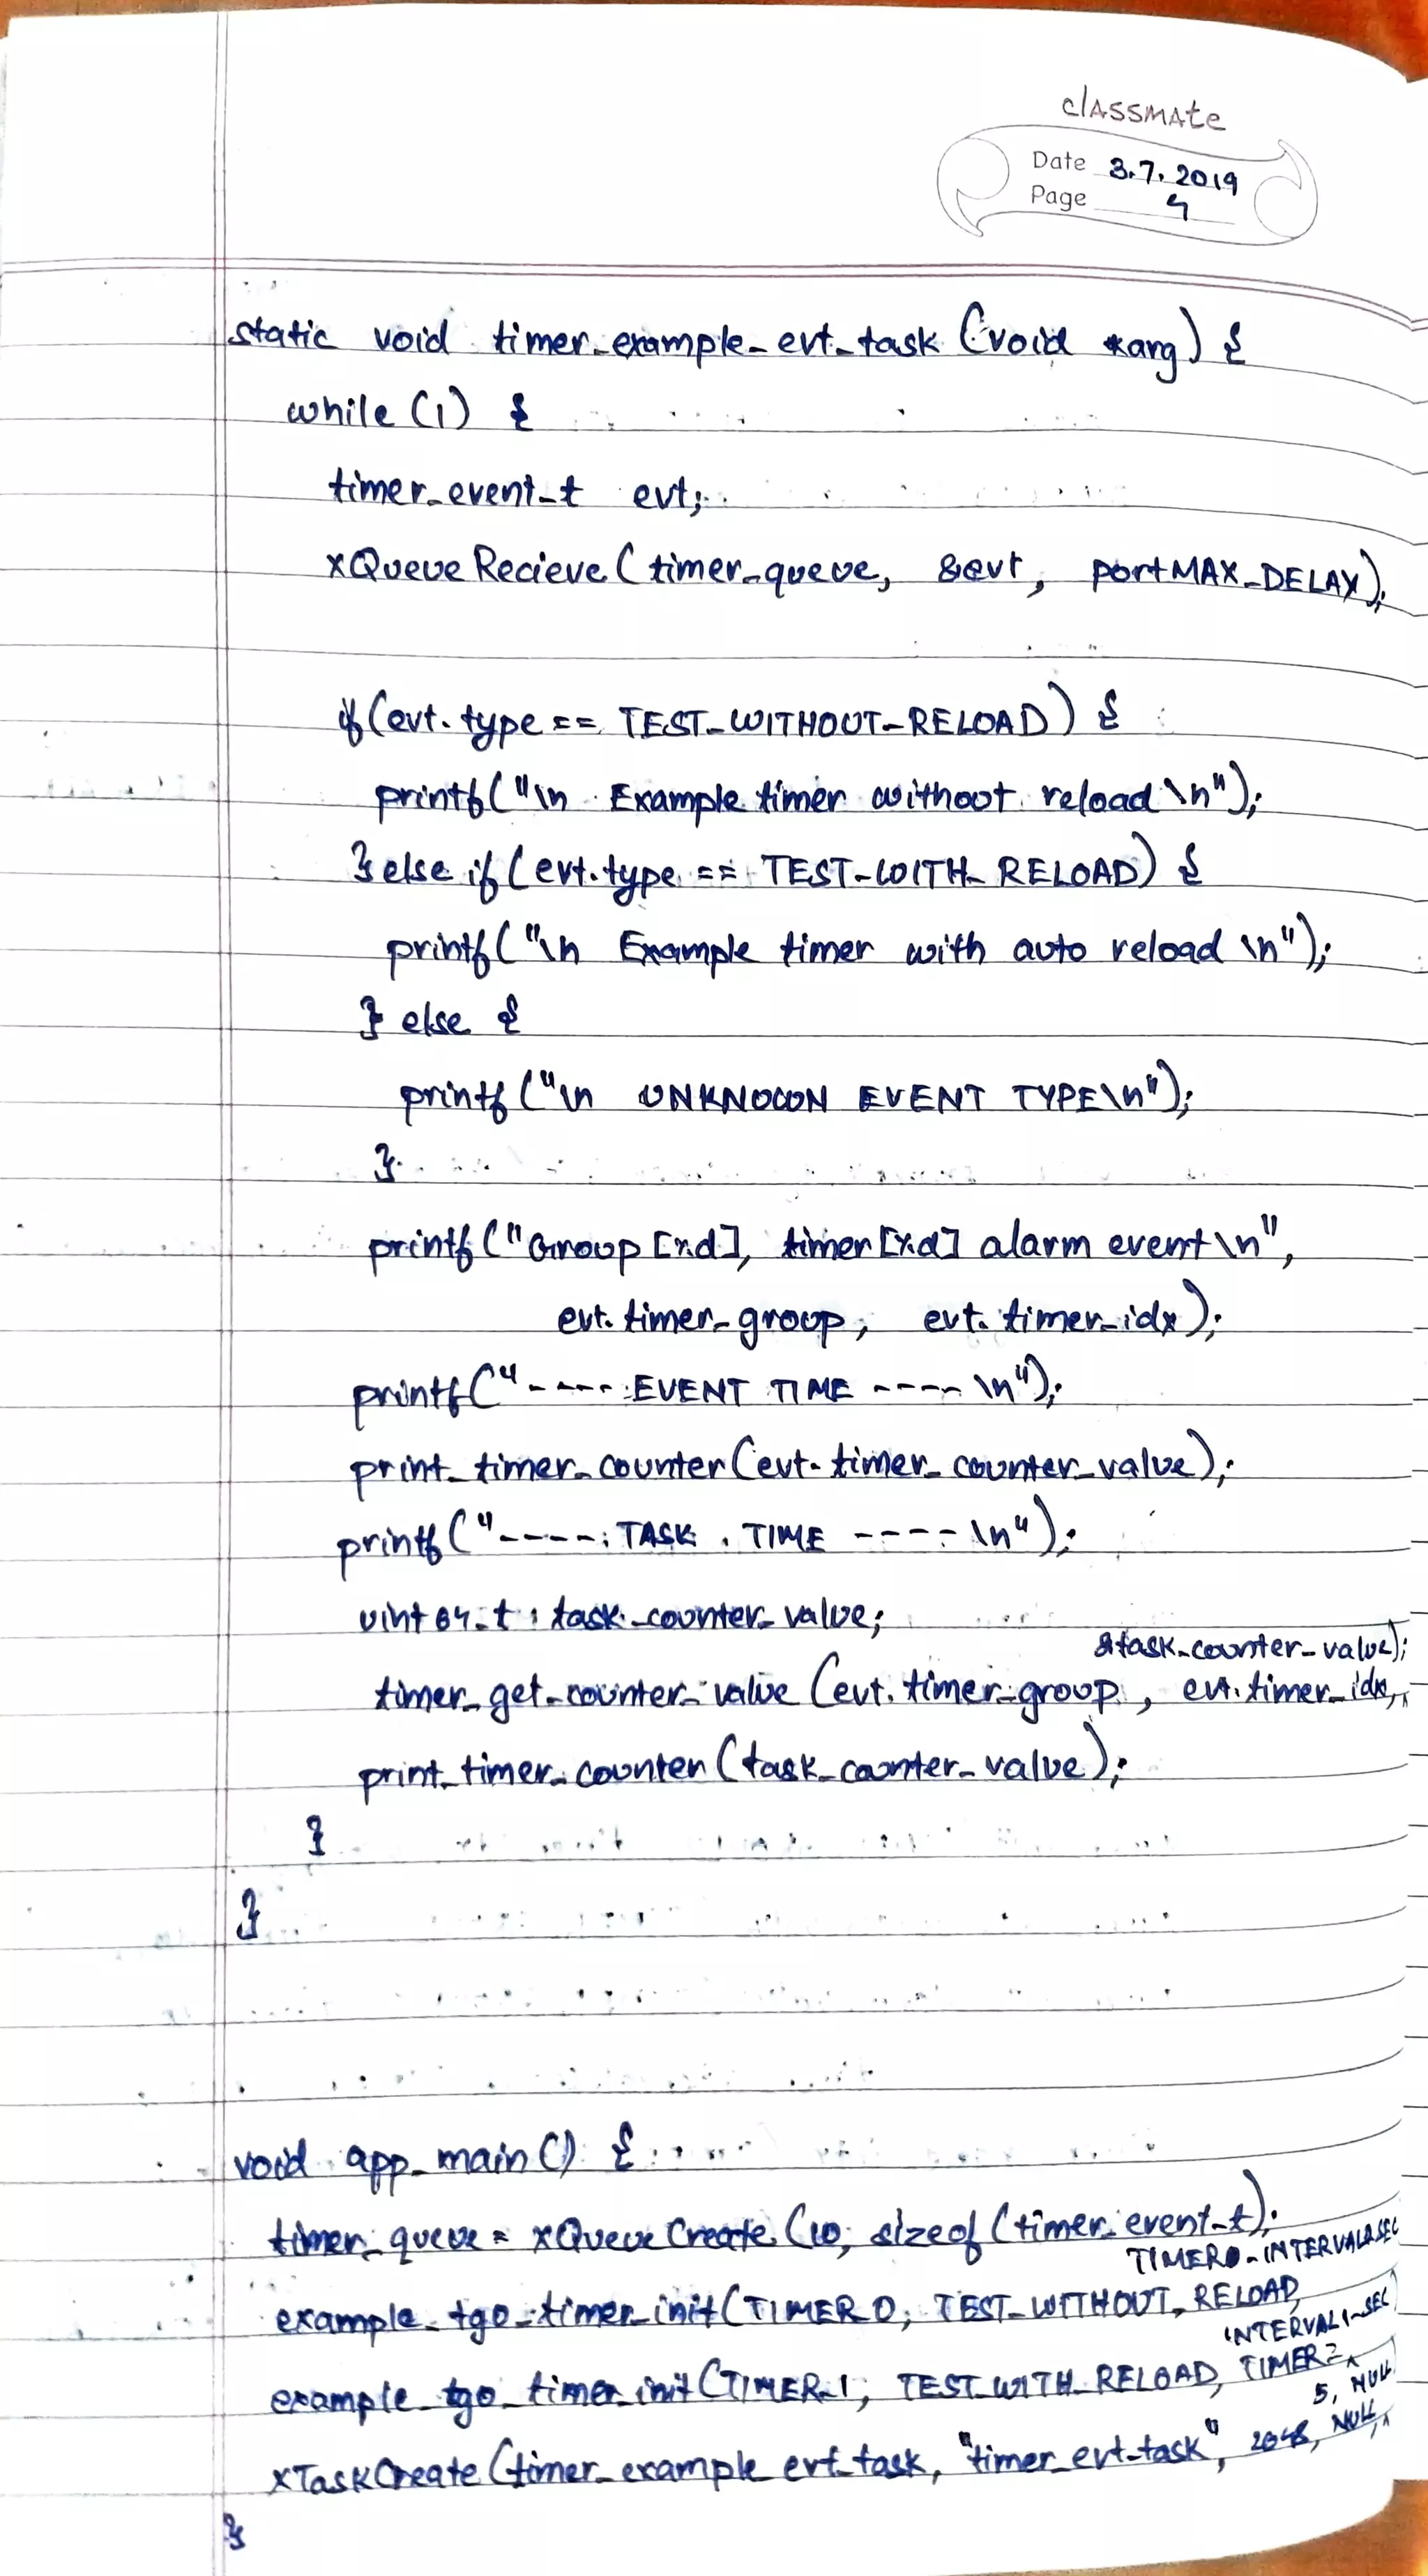 classmate
Date 3.7.2019
Page 4
static void timer_example_evt_task (void *arg) {
while (1) {
timer_event_t evt;
xQueueRecieve (timer_queue, &evt, portMAX_DELAY);
if (evt.type == TEST_WITHOUT_RELOAD) {
printf("\n Example timer without reload \n");
} else if (evt.type == TEST_WITH_RELOAD) {
printf("\n Example timer with auto reload \n");
} else {
printf("\n UNKNOWN EVENT TYPE\n");
}
printf("Group [%d], timer [%d] alarm event \n",
evt.timer_group, evt.timer_idx);
printf("---- EVENT TIME ---- \n");
print_timer_counter (evt.timer_counter_value);
printf("---- TASK TIME ---- \n");
uint64_t task_counter_value;
timer_get_counter_value (evt.timer_group, evt.timer_idx, &task_counter_value);
print_timer_counter (task_counter_value);
}
}
void app_main() {
timer_queue = xQueueCreate (10, sizeof (timer_event_t);
example_tg0_timer_init (TIMER_0, TEST_WITHOUT_RELOAD, TIMER0_INTERVAL0_SEC
example_tg0_timer_init (TIMER_1, TEST_WITH_RELOAD, TIMER INTERVAL1_SEC
xTaskCreate (timer_example_evt_task, "timer_evt_task", 2048, NULL, 5, NULL
}